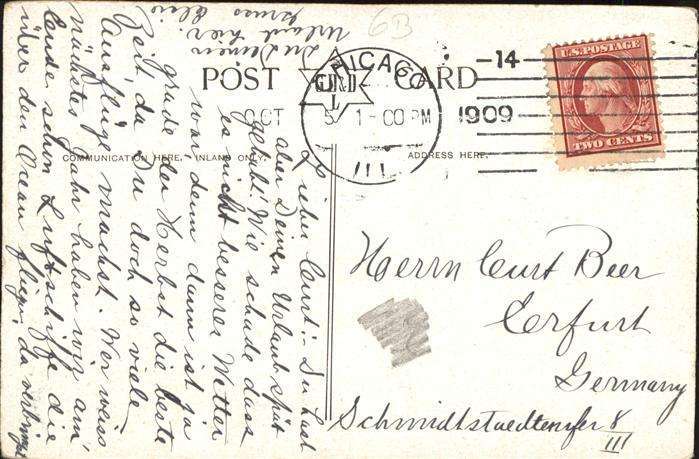 6B
POST CARD
GUND
L
CHICAGO
ILL
OCT 5 1-00 PM
1909
14
U.S. POSTAGE
TWO CENTS
COMMUNICATION HERE, INLAND ONLY.
ADDRESS HERE.
Lieber Curt! - Du hast
aber Deinen Urlaub spät
gelebt! Wie schade dass
es nicht besseres Wetter
war denn dann ist ja
grade der Herbst die beste
Zeit, da Du doch so viele
Ausflüge machst. Wer weiss
nächstes Jahr haben wir am
Ende schon Luftschiffe die
über den Ocean fliegen, da verbringst
Du Deinen
Urlaub hier.
Gruss
Herrn Curt Beer
Erfurt
Germany
Schmidtstaedterufer 8
III